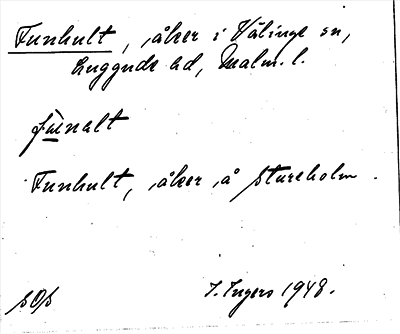 Funhult, åker i Välinge sn,
Luggude hd, Malm. l.
Funhult, åker å Stureholm.
I. Ingers 1948.